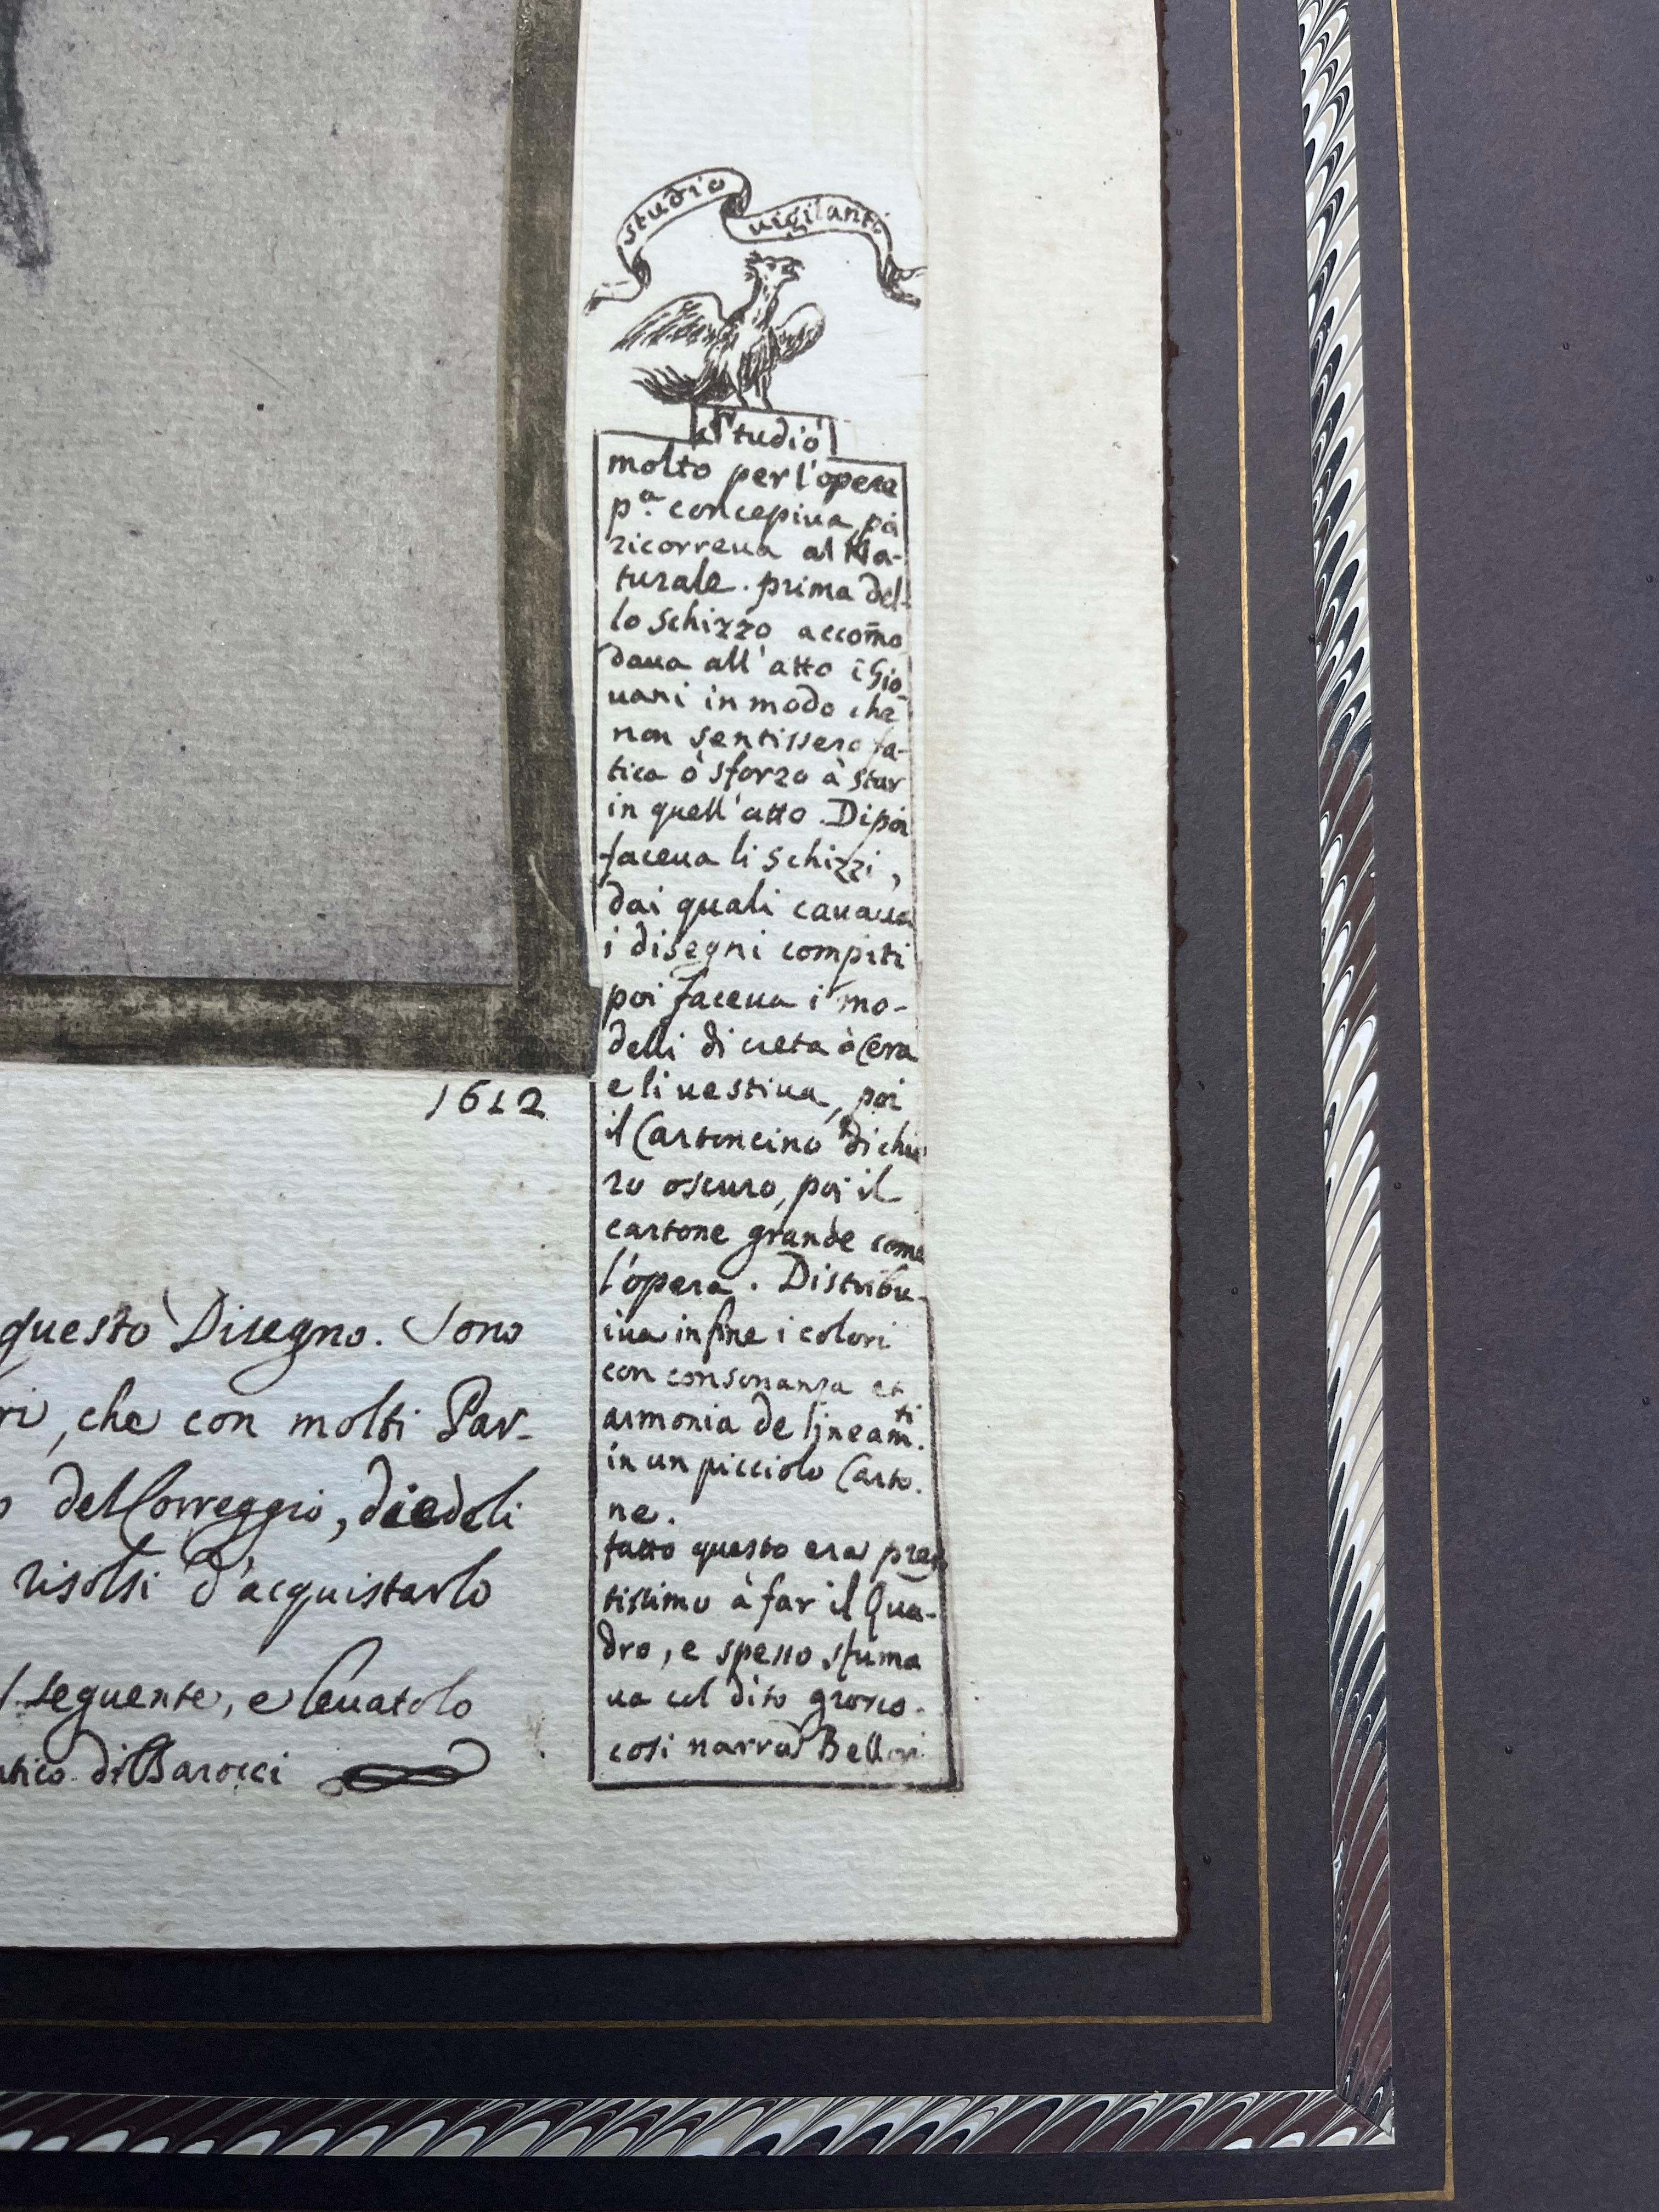 studio uigilanti
studiò
molto per l'opere
p.ª concepiua, poi
ricorreua al Na-
turale. prima del-
lo schizzo accom̄o
daua all'atto i Gio-
uani in modo che
non sentissero fa-
tica ò sforzo à star
in quell'atto. Di poi
faceua li schizzi,
dai quali cauaua
i disegni compiti
poi faceua i mo-
delli di creta ò Cera
e li uestiua, poi
il Cartoncino di chia
ro oscuro, poi il
cartone grande come
l'opera. Distribu-
iua in fine i colori
con consonanza et
armonia de lineam.ti
in un picciolo Carto.
ne.
fatto questo era pres
tissimo à far il Qua-
dro, e spesso sfuma
ua col dito grosso.
cosi narra Bellori
1612
questo Disegno. Sono
ri, che con molti Par-
o del Correggio, diedeli
risolsi d'acquistarlo
seguente, e leuatolo
atico di Barocci